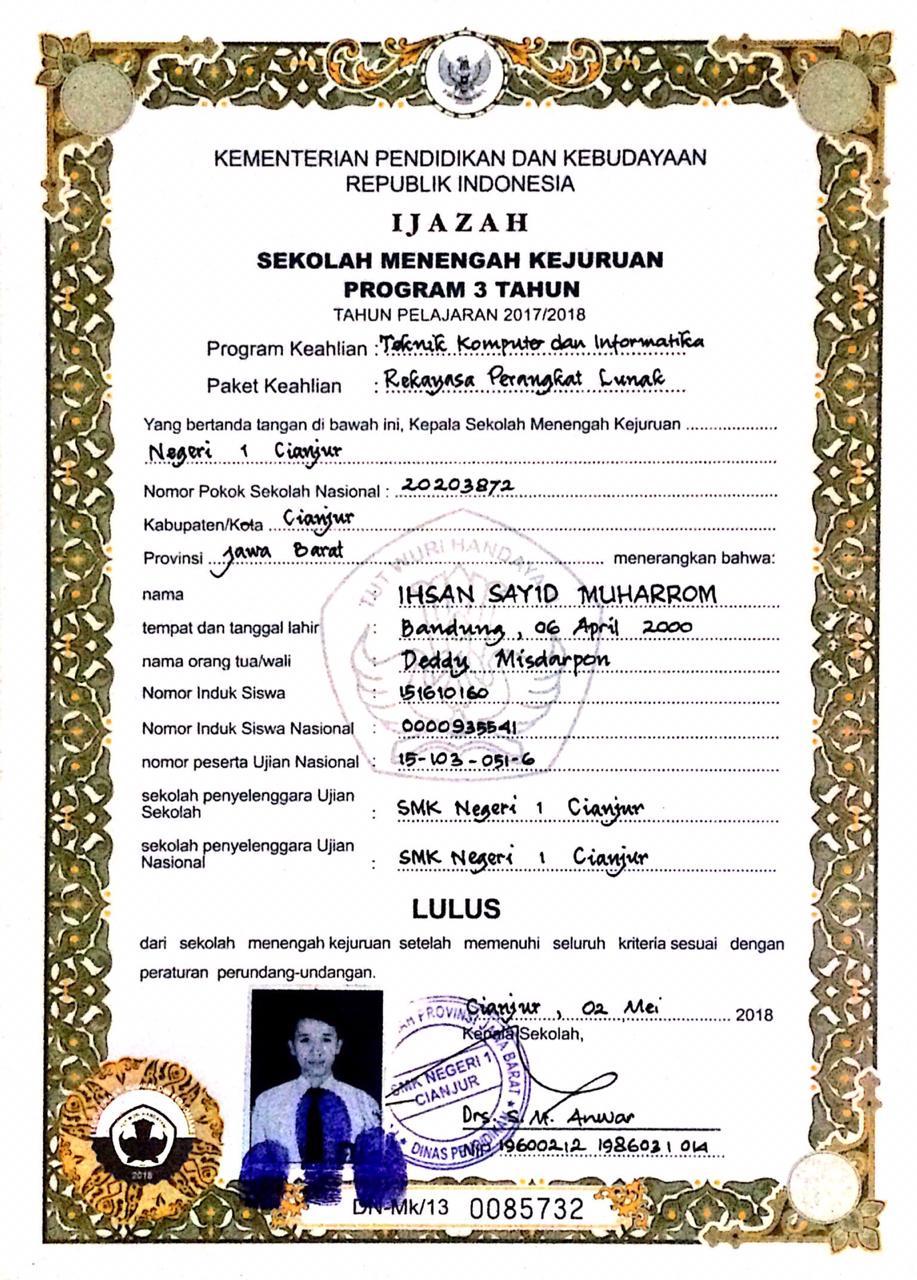 KEMENTERIAN PENDIDIKAN DAN KEBUDAYAAN
REPUBLIK INDONESIA
IJAZAH
SEKOLAH MENENGAH KEJURUAN
PROGRAM 3 TAHUN
TAHUN PELAJARAN 2017/2018
Program Keahlian : Teknik Komputer dan Informatika
Paket Keahlian : Rekayasa Perangkat Lunak
Yang bertanda tangan di bawah ini, Kepala Sekolah Menengah Kejuruan
Negeri 1 Cianjur
Nomor Pokok Sekolah Nasional : 20203872
Kabupaten/Kota Cianjur
Provinsi Jawa Barat menerangkan bahwa:
nama IHSAN SAYID MUHARROM
tempat dan tanggal lahir : Bandung, 06 April 2000
nama orang tua/wali : Deddy Misdarpon
Nomor Induk Siswa : 151610160
Nomor Induk Siswa Nasional : 0000935541
nomor peserta Ujian Nasional : 15-103-051-6
sekolah penyelenggara Ujian
Sekolah : SMK Negeri 1 Cianjur
sekolah penyelenggara Ujian
Nasional : SMK Negeri 1 Cianjur
LULUS
dari sekolah menengah kejuruan setelah memenuhi seluruh kriteria sesuai dengan
peraturan perundang-undangan.
Cianjur, 02 Mei 2018
Kepala Sekolah,
PROVINSI JAWA BARAT
SMK NEGERI 1
CIANJUR
DINAS PENDIDIKAN
Drs. S. M. Anwar
19600212 198603 1 014
DN-Mk/13 0085732
TUT WURI HANDAYA
2018